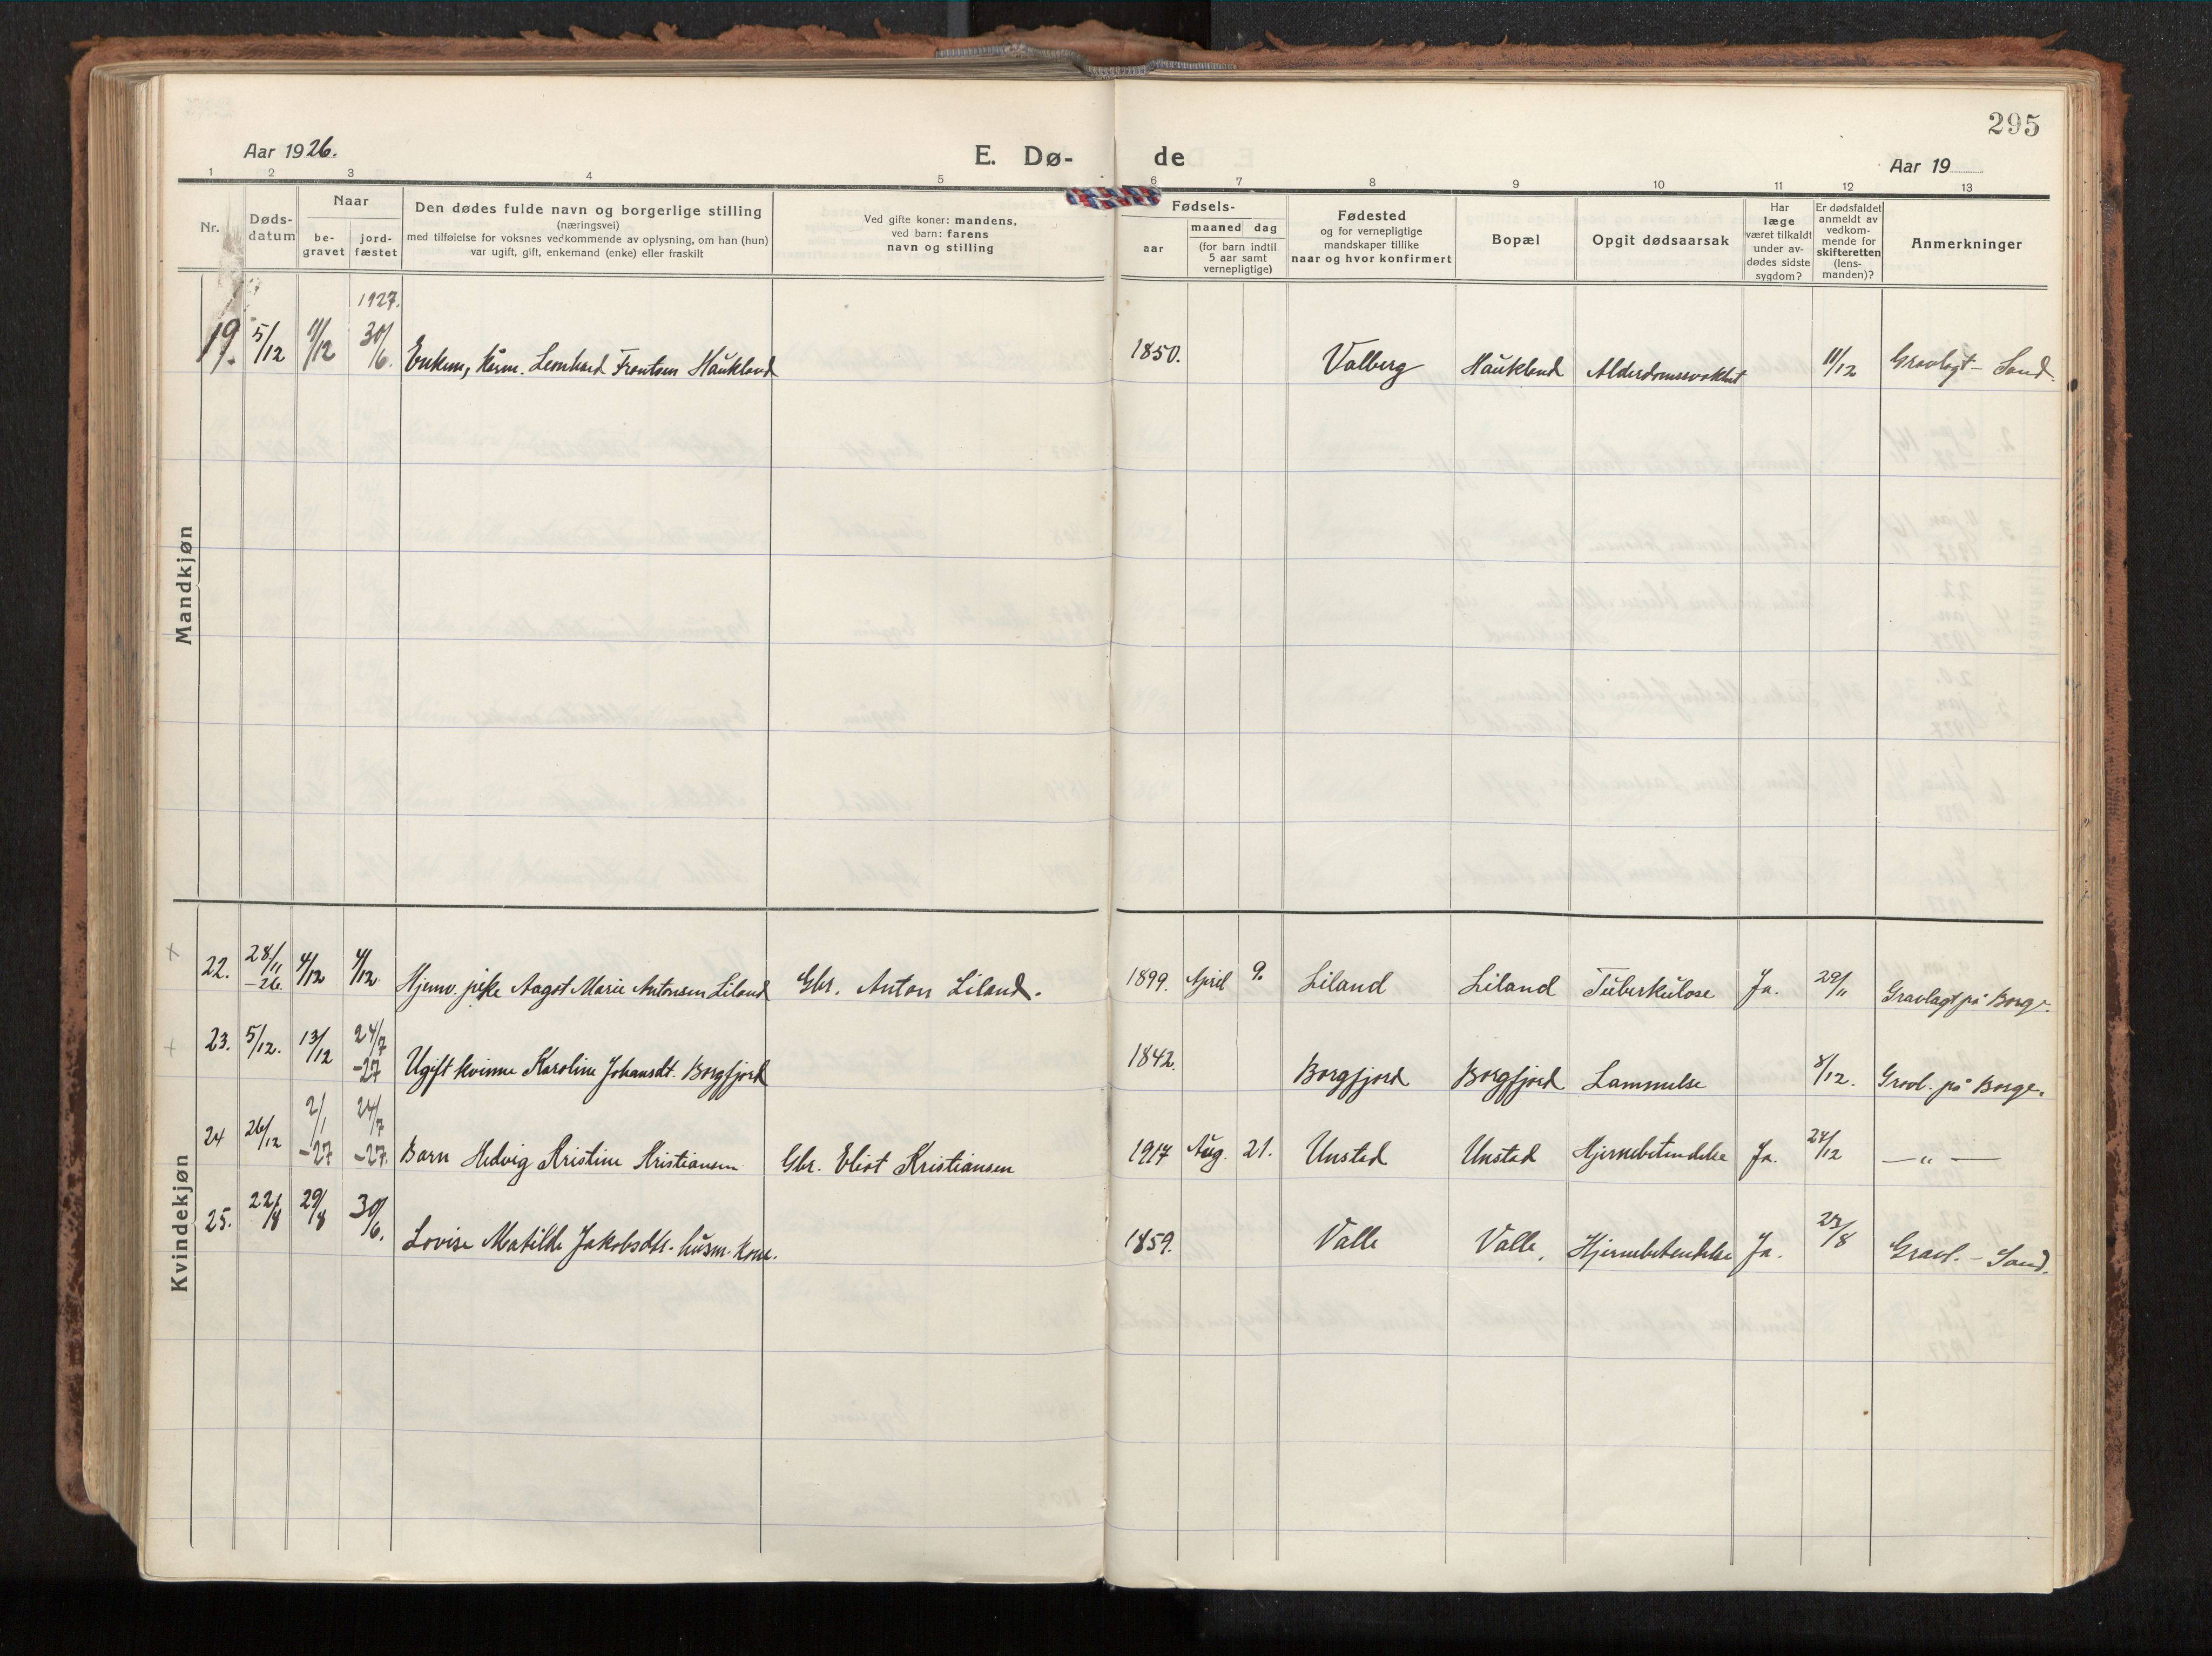 295
Aar 1926.
E. Dø- de
Aar 19
1 2 3 4 5 6 7 8 9 10 11 12 13
Nr.
Døds-
datum
Naar
be-
gravet
jord-
fæstet
Den dødes fulde navn og borgerlige stilling
(næringsvei)
med tilføielse for voksnes vedkommende av oplysning, om han (hun)
var ugift, gift, enkemand (enke) eller fraskilt
Ved gifte koner: mandens,
ved barn: farens
navn og stilling
Fødsels-
aar
maaned dag
(for barn indtil
5 aar samt
vernepligtige)
Fødested
og for vernepligtige
mandskaper tillike
naar og hvor konfirmert
Bopæl
Opgit dødsaarsak
Har
læge
været tilkaldt
under av-
dødes sidste
sygdom?
Er dødsfaldet
anmeldt av
vedkom-
mende for
skifteretten
(lens-
manden)?
Anmerkninger
Mandkjøn
1927.
19. 5/12 11/12 30/6. Enkem, Leonhard Frantsen Haukland 1850. Valberg Haukland Alderdomssvakhet 11/12 Gravlagt - Sand.
Kvindekjøn
22. 28/11 -26. 4/12 4/12. Hjemv. pike Aagot Marie Antonsen Liland Gbr. Anton Liland. 1899. April 9. Liland Liland Tuberkulose Ja. 29/11 Gravlagt på Borge.
23. 5/12. 13/12 24/7 -27 Ugift kvinne Karoline Johansdt. Borgfjord 1842. Borgfjord Borgfjord Lammelse 8/12. Gravl. på Borge.
24 26/12 2/1 -27 24/7 -27. Barn Hedvig Kristine Kristiansen Gbr. Eliot Kristiansen 1917 Aug. 21. Unstad Unstad Hjernebetendelse Ja. 24/12 — " —
25. 22/8 29/8 30/6. Lovise Matilde Jakobsdtr. husm. kone. 1859. Valle Valle. Hjernebetendelse Ja. 23/8 Gravl. - Sand.